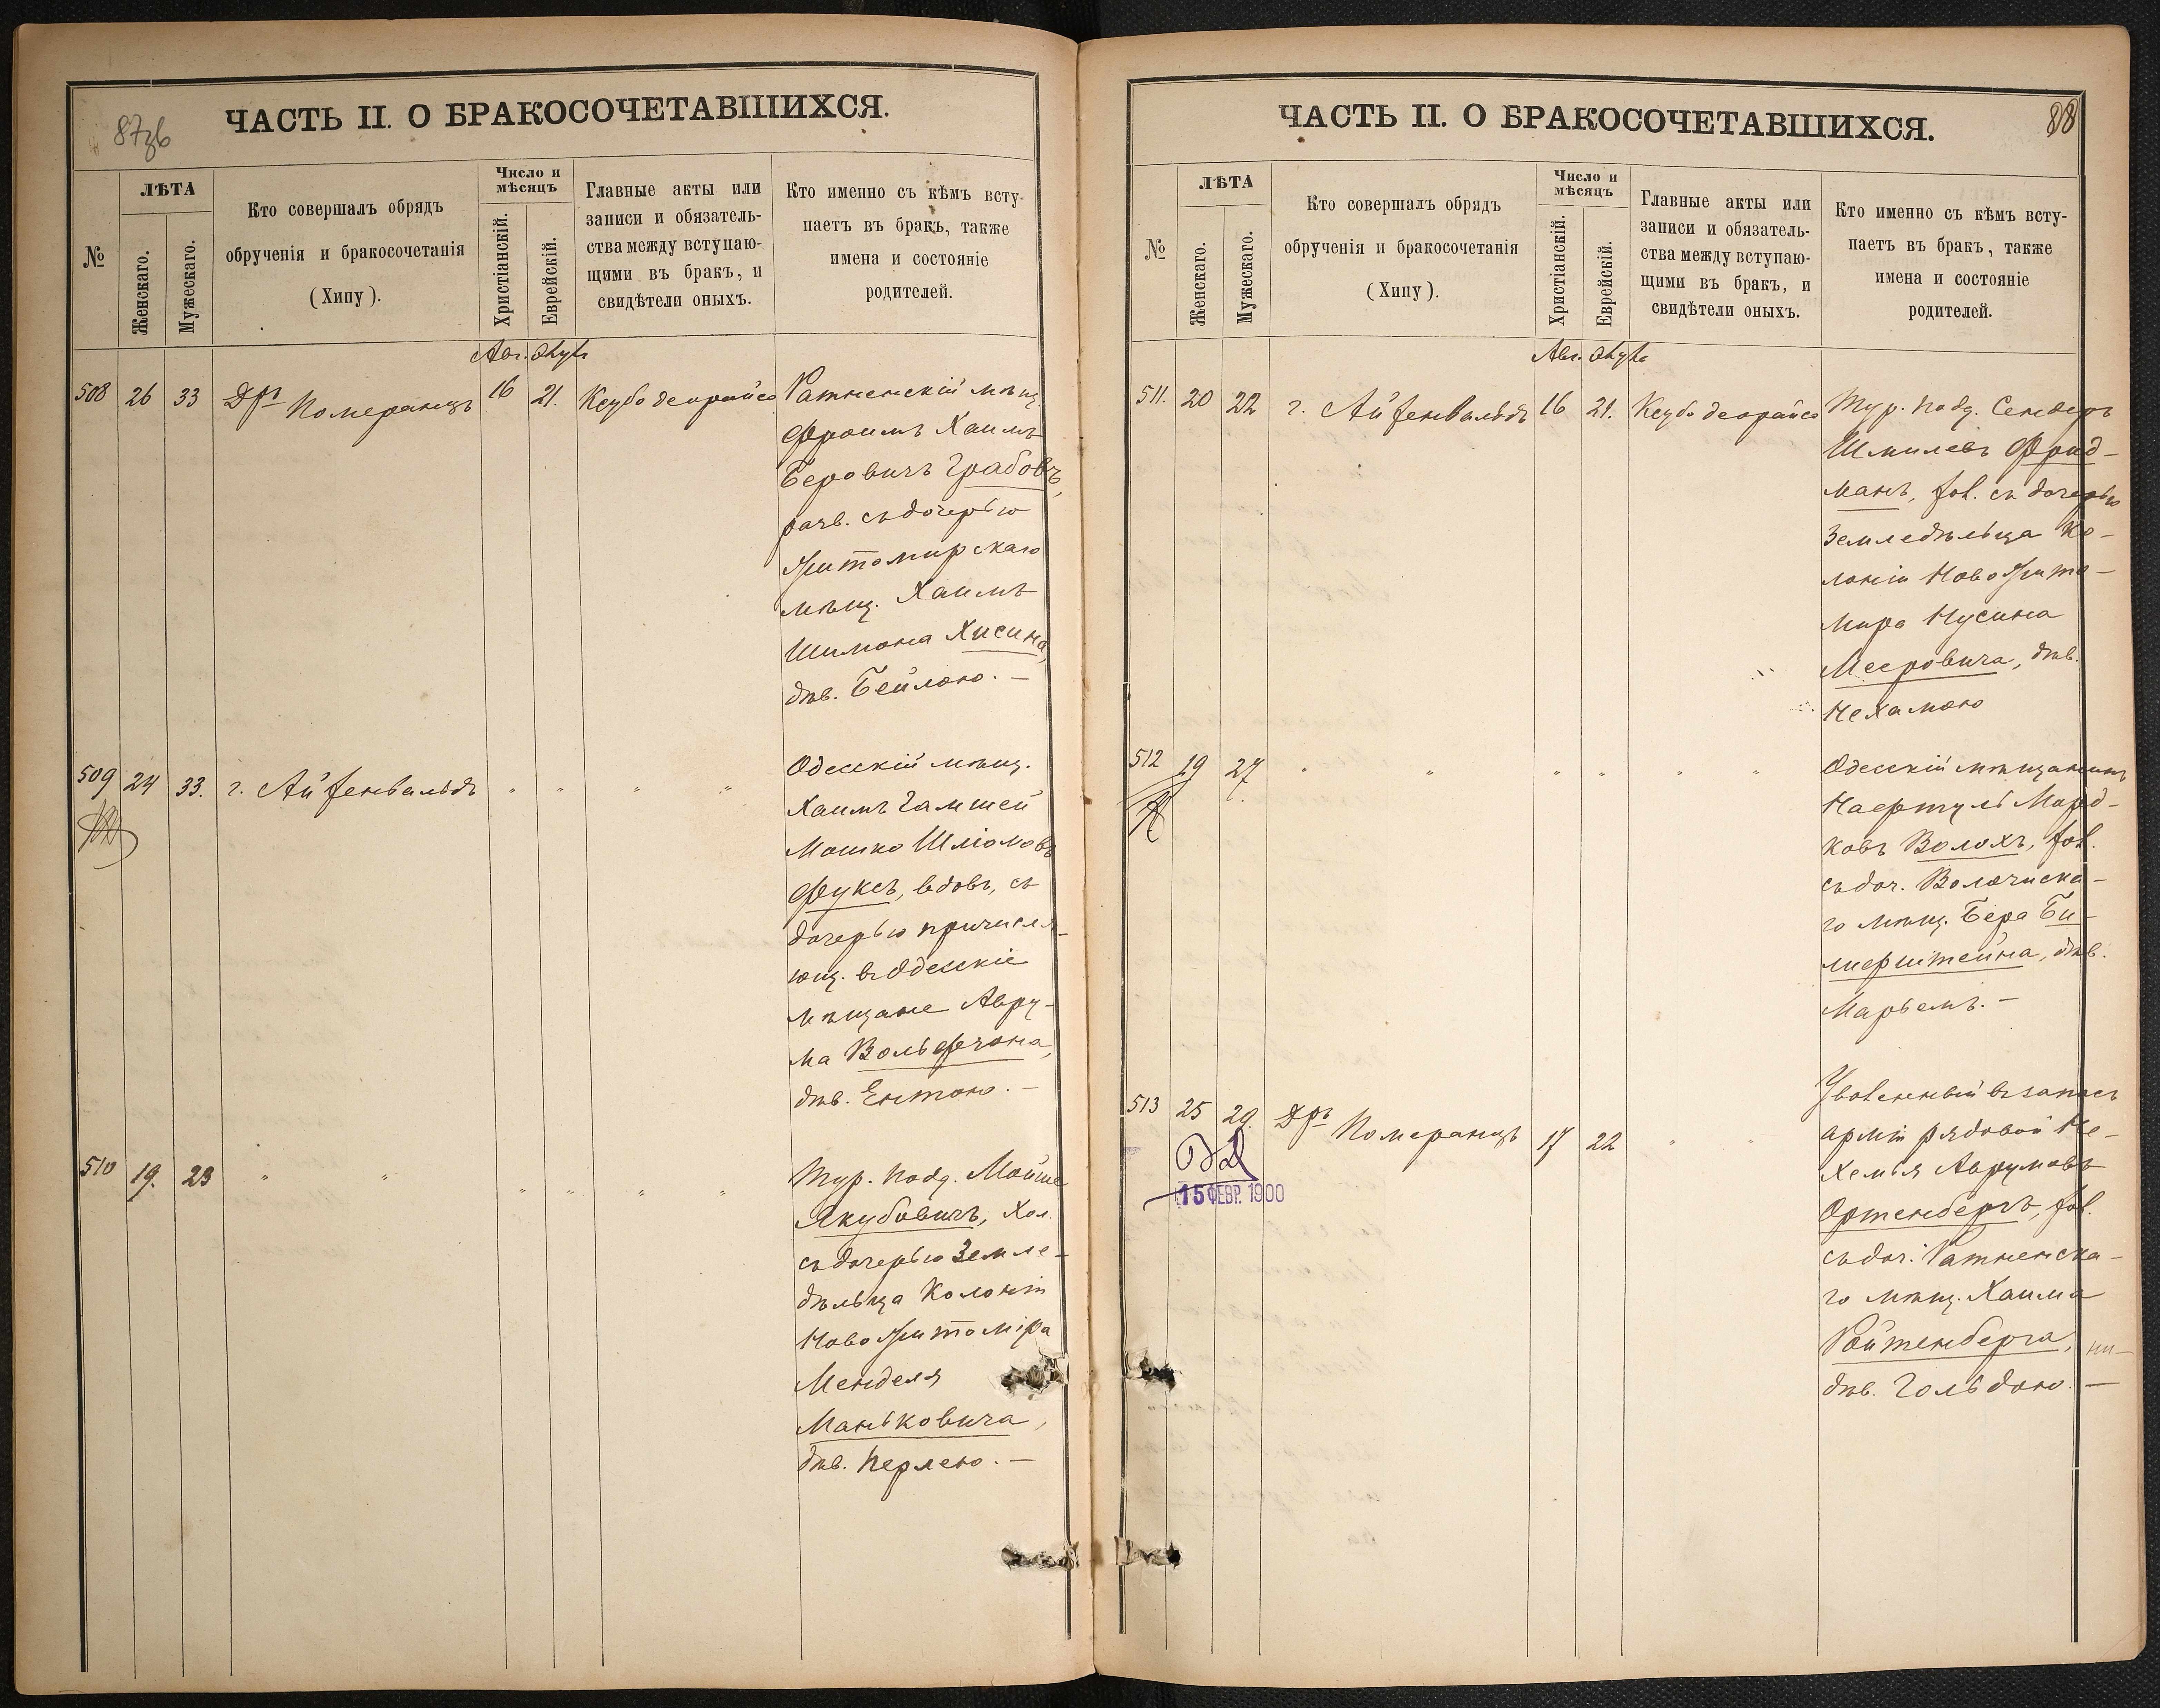 87об
ЧАСТЬ II. О БРАКОСОЧЕТАВШИХСЯ.
№
ЛѢТА
Женскаго.
Мужескаго.
Кто совершалъ обрядъ
обрученія и бракосочетанія
(Хипу).
Число и
мѣсяцъ
Христіанскій.
Еврейскій.
Главные акты или
записи и обязатель-
ства между вступаю-
щими въ бракъ, и
свидѣтели оныхъ.
Кто именно съ кѣмъ всту-
паетъ въ бракъ, также
имена и состояніе
родителей.
Авг.
508 26 33 Дръ Померанцъ 16 21. Ксубо деорайсо
Ратненскій мѣщ.
Фроимъ Хаимъ
Беровичъ Грабовъ,
разв. съ дочерью
Житомирскаго
мѣщ. Хаимъ
Шимона Хисина,
дѣв. Бейлою. —
509 24 33. г. Айзенвальдъ " " " "
Одесскій мѣщ.
Хаимъ Гамшей
Мошко Шліомовъ
Фуксъ, вдовъ, съ
дочерью причисля-
ющ. въ Одесскіе
мѣщане Авру-
ма Вольфзона,
дѣв. Ентою. —
510 19. 23 " " " " " "
Тур. подд. Мойше
Якубовичъ, Хол.
съ дочерью Земле-
дѣльца Колоніи
Новожитоміра
Менделя
Маньковича,
дѣв. Перлею. —
88
ЧАСТЬ II. О БРАКОСОЧЕТАВШИХСЯ.
№
ЛѢТА
Женскаго.
Мужескаго.
Кто совершалъ обрядъ
обрученія и бракосочетанія
(Хипу).
Число и
мѣсяцъ
Христіанскій.
Еврейскій.
Главные акты или
записи и обязатель-
ства между вступаю-
щими въ бракъ, и
свидѣтели оныхъ.
Кто именно съ кѣмъ всту-
паетъ въ бракъ, также
имена и состояніе
родителей.
Авг.
511. 20 22 г. Айзенвальдъ 16 21. Ксубо деорайсо
Тур. подд. Сендеръ
Шмилевъ Фрид-
манъ, хол. съ дочерью
Земледѣльца Ко-
лоніи Новожито-
мира Нусина
Меeровича, дѣв.
Нехамою
512 19 27 " " " " " "
Одесскій мѣщанинъ
Морд-
ковъ Волохъ, хол.
съ доч. Волочиска-
го мѣщ. Бера Би-
мерштейна, дѣв.
Марьемъ. —
513 25 29. Дръ Померанцъ 17 22 " "
Уволенный въ запасъ
арміи рядовой Не-
хемья Аврумовъ
Ортенбергъ, хол.
съ доч. Ратненска-
го мѣщ. Хаима
Ройтенберга,
дѣв. Гольдою. —
15 ФЕВР. 1900